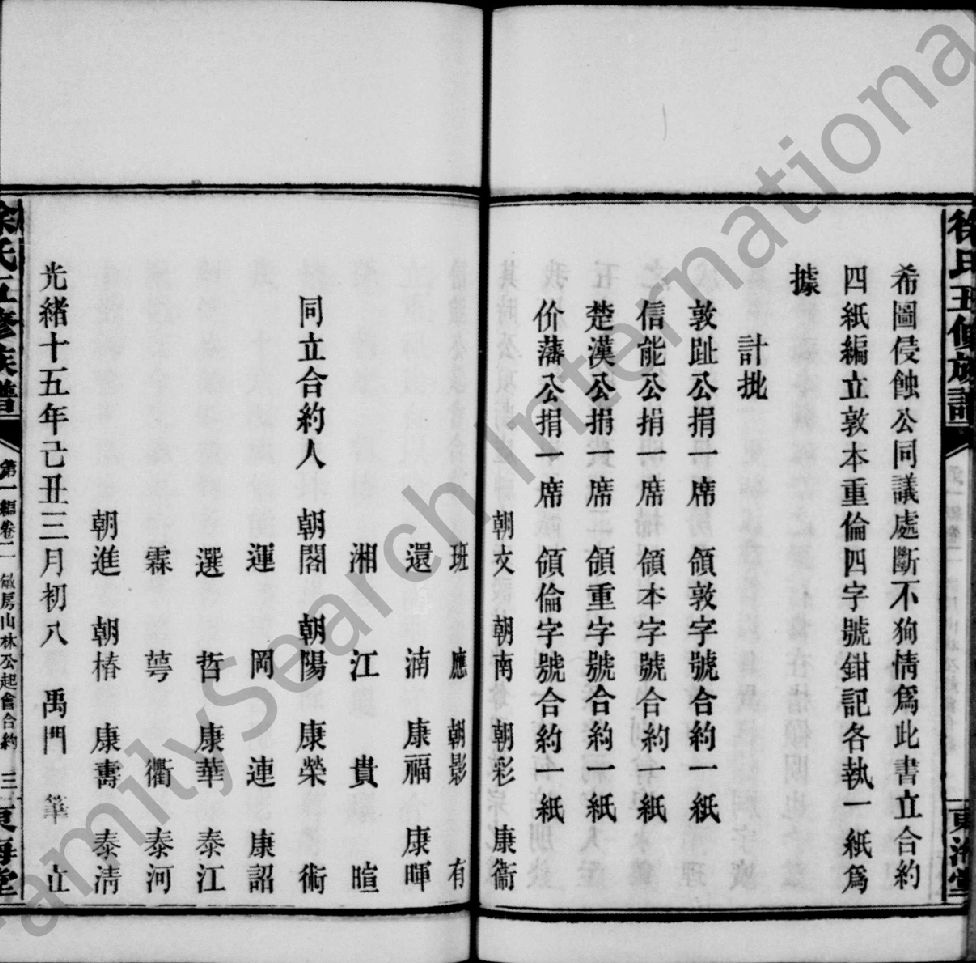 希圖侵蝕公同議處斷不狥情爲此書立合約
四紙編立敦本重倫四字號鉗記各執一紙爲
據
計批
敦趾公捐一席 領敦字號合約一紙
信能公捐一席 領本字號合約一紙
楚漢公捐一席 領重字號合約一紙
价藩公捐一席 領倫字號合約一紙
朝交 朝南 朝彩 康衞
班 應 朝影 有
還 湳 康福 康暉
湘 江 貴 暄
同立合約人 朝閣 朝陽 康榮 術
運 岡 連 康詔
選 哲 康華 泰江
霖 蕚 衢 泰河
朝進 朝椿 康壽 泰清
光緒十五年己丑三月初八 禹門 筆 立
徐氏五修族譜 第一編卷二 敏房山林公起會合約 三 東海堂
徐氏五修族譜
東海堂
FamilySearch International